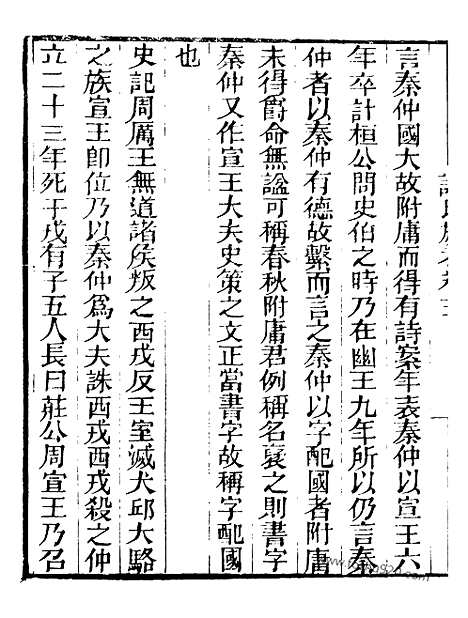 言秦仲國大故附庸而得有詩案年表秦仲以宣王六
年卒計桓公問史伯之時乃在幽王九年所以仍言秦
仲者以秦仲有德故繫而言之秦仲以字配國者附庸
未得爵命無謚可稱春秋附庸君例稱名褒之則書字
秦仲又作宣王大夫史策之文正當書字故稱字配國
也
史記周厲王無道諸侯叛之西戎反王室滅犬邱大駱
之族宣王卽位乃以秦仲爲大夫誅西戎西戎殺之仲
立二十三年死于戎有子五人長曰莊公周宣王乃召